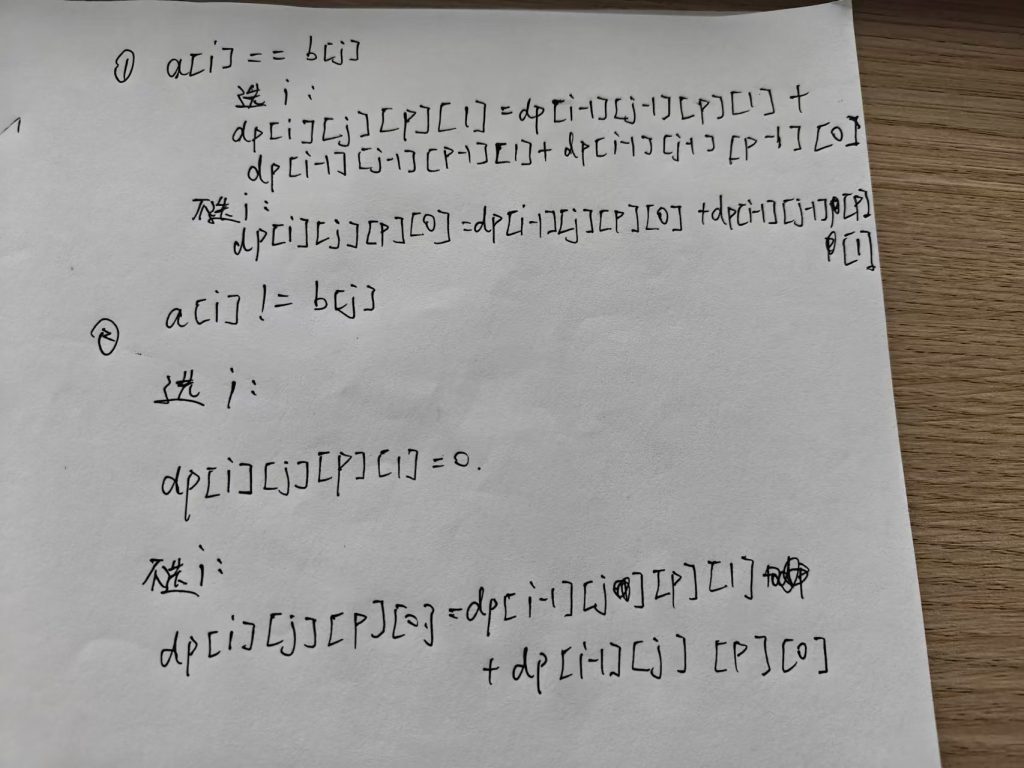 ① a[i] == b[j]
选 i :
dp[i][j][p][1] = dp[i-1][j-1][p][1] +
dp[i-1][j-1][p-1][1] + dp[i-1][j-1] [p-1] [0]
不选 i :
dp[i][j][p][0] = dp[i-1][j][p][0] + dp[i-1][j-1][p]
[1]
② a[i] != b[j]
选 i :
dp[i][j][p][1] = 0.
不选 i :
dp[i][j][p][0] = dp[i-1][j][p][1]
+ dp[i-1][j] [p][0]